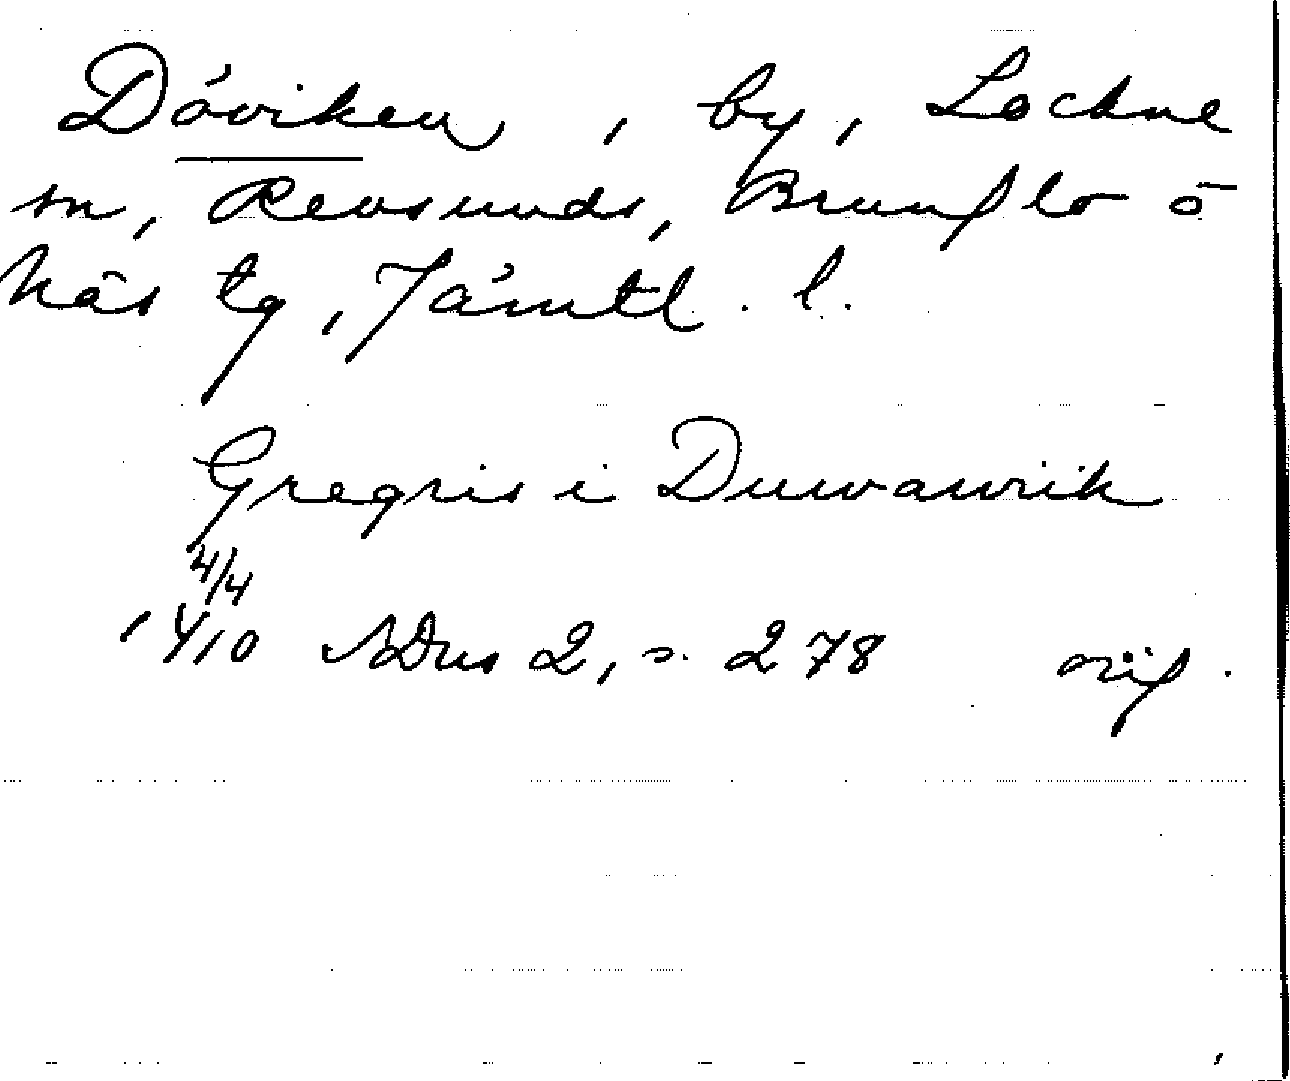 Döviken, by, Lockne
sn, Revsunds, Brunflo o
Näs tg, Jämtl. l.
Gregris i Duwawiik
4/4
1410 NDns 2, s. 278 orig.